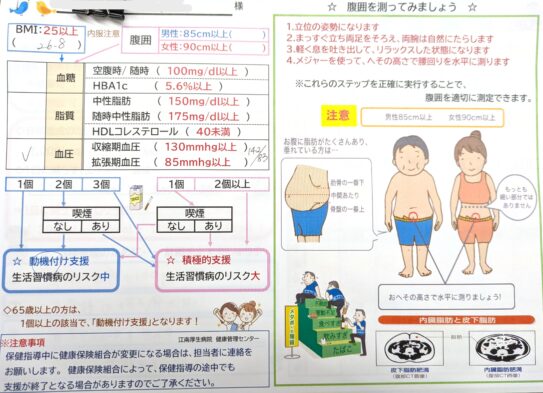 様
BMI：25以上
(26.8)
内服注意
腹囲
男性：85cm以上(　　)
女性：90cm以上(　　)
血糖
空腹時/ 随時 ( 100mg/dl以上 )
HBA1c ( 5.6%以上 )
脂質
中性脂肪 ( 150mg/dl以上 )
随時中性脂肪 ( 175mg/dl以上 )
HDLコレステロール ( 40未満 )
血圧
収縮期血圧 ( 130mmhg以上 )
拡張期血圧 ( 85mmhg以上 )
142/83
1個 2個 3個
1個 2個以上
喫煙
なし あり
喫煙
なし あり
☆ 動機付け支援
生活習慣病のリスク中
☆ 積極的支援
生活習慣病のリスク大
◇65歳以上の方は、
1個以上の該当で、「動機付け支援」となります！
江南厚生病院 健康管理センター
※注意事項
保健指導中に健康保険組合が変更になる場合は、担当者に連絡を
お願いします。 健康保険組合によって、保健指導の途中でも
支援が終了となる場合がありますのでご了承ください。
腹囲を測ってみましょう
1.立位の姿勢になります
2.まっすぐ立ち両足をそろえ、両腕は自然にたらします
3.軽く息を吐き出して、リラックスした状態になります
4.メジャーを使って、へその高さで腰回りを水平に測ります
※これらのステップを正確に実行することで、
腹囲を適切に測定できます。
注意
男性85cm以上 女性90cm以上
お腹に脂肪がたくさんあり、
垂れている方は…
肋骨の一番下
中間あたり
骨盤の一番上
もっとも
細い部分では
ありません
おへその高さで水平に測りましょう！
メタボへの階段
運動不足
食べすぎ
飲みすぎ
たばこ
内臓脂肪と皮下脂肪
脂肪
皮下脂肪肥満
(腹部CT画像)
内臓脂肪肥満
(腹部CT画像)